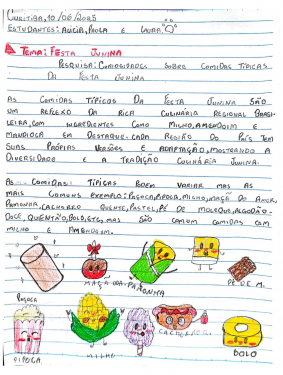 CURITIBA, 10/06/2025
ESTUDANTES: ALICIA, E LAURA.
TEMA: FESTA JUNINA
PESQUISA: CURIOSIDADES SOBRE COMIDAS TÍPICAS
DA FESTA JUNINA
AS COMIDAS TÍPICAS DA FESTA JUNINA SÃO
UM REFLEXO DA RICA CULINÁRIA REGIONAL BRASI-
LEIRA, COM INGREDIENTES COMO MILHO, AMENDOIM E
MANDIOCA EM DESTAQUE. CADA REGIÃO DO PAÍS TEM
SUAS PRÓPIAS VERSÕES E ADAPTAÇÃO, MOSTRANDO A
DIVERSIDADE E A TRADIÇÃO CULINÁRIA JUNINA.
AS COMIDAS TÍPICAS PODEM VARIAR MAS AS
MAIS COMUNS EXEMPLO: PAÇOCA, MILHO, MAÇÃ DO AMOR,
PAMONHA, CACHORRO QUENTE, PASTEL, PÉ DE MOLEQUE, ALGODÃO-
DOCE, QUENTÃO, BOLO, ETC, MAS SÃO COMIDAS COM
MILHO E AMENDOIM.
MAÇÃ DO PAMONHA PÉ DE M.
PAÇOCA
PIPOCA MILHO BOLO